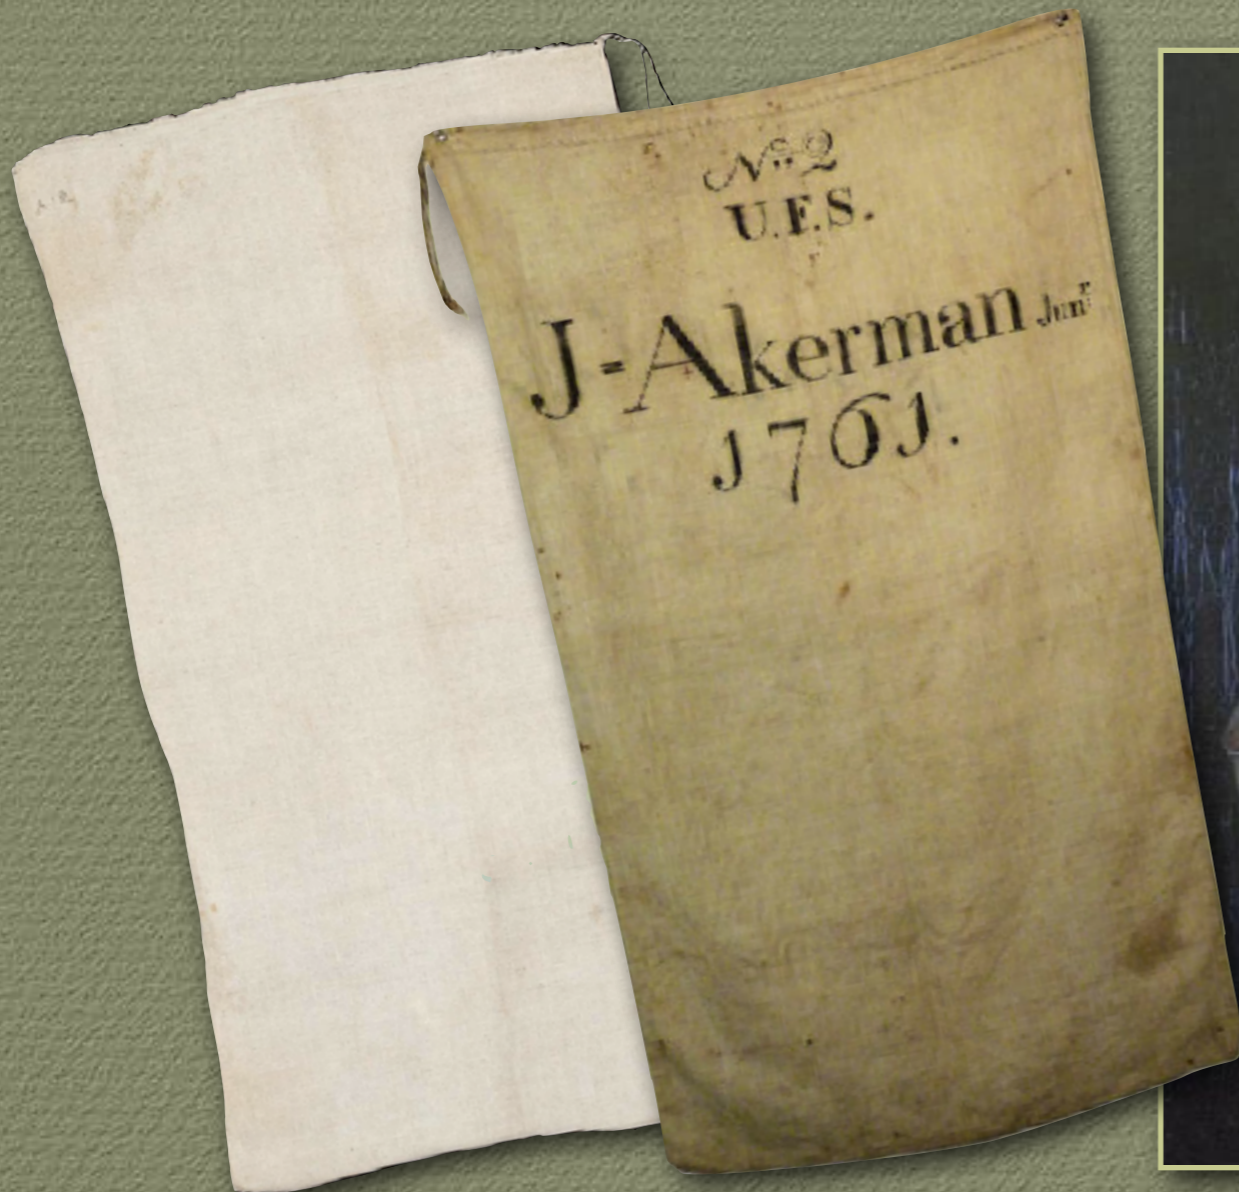 No. 2
U.F.S.
J=Akerman Junr
1761.